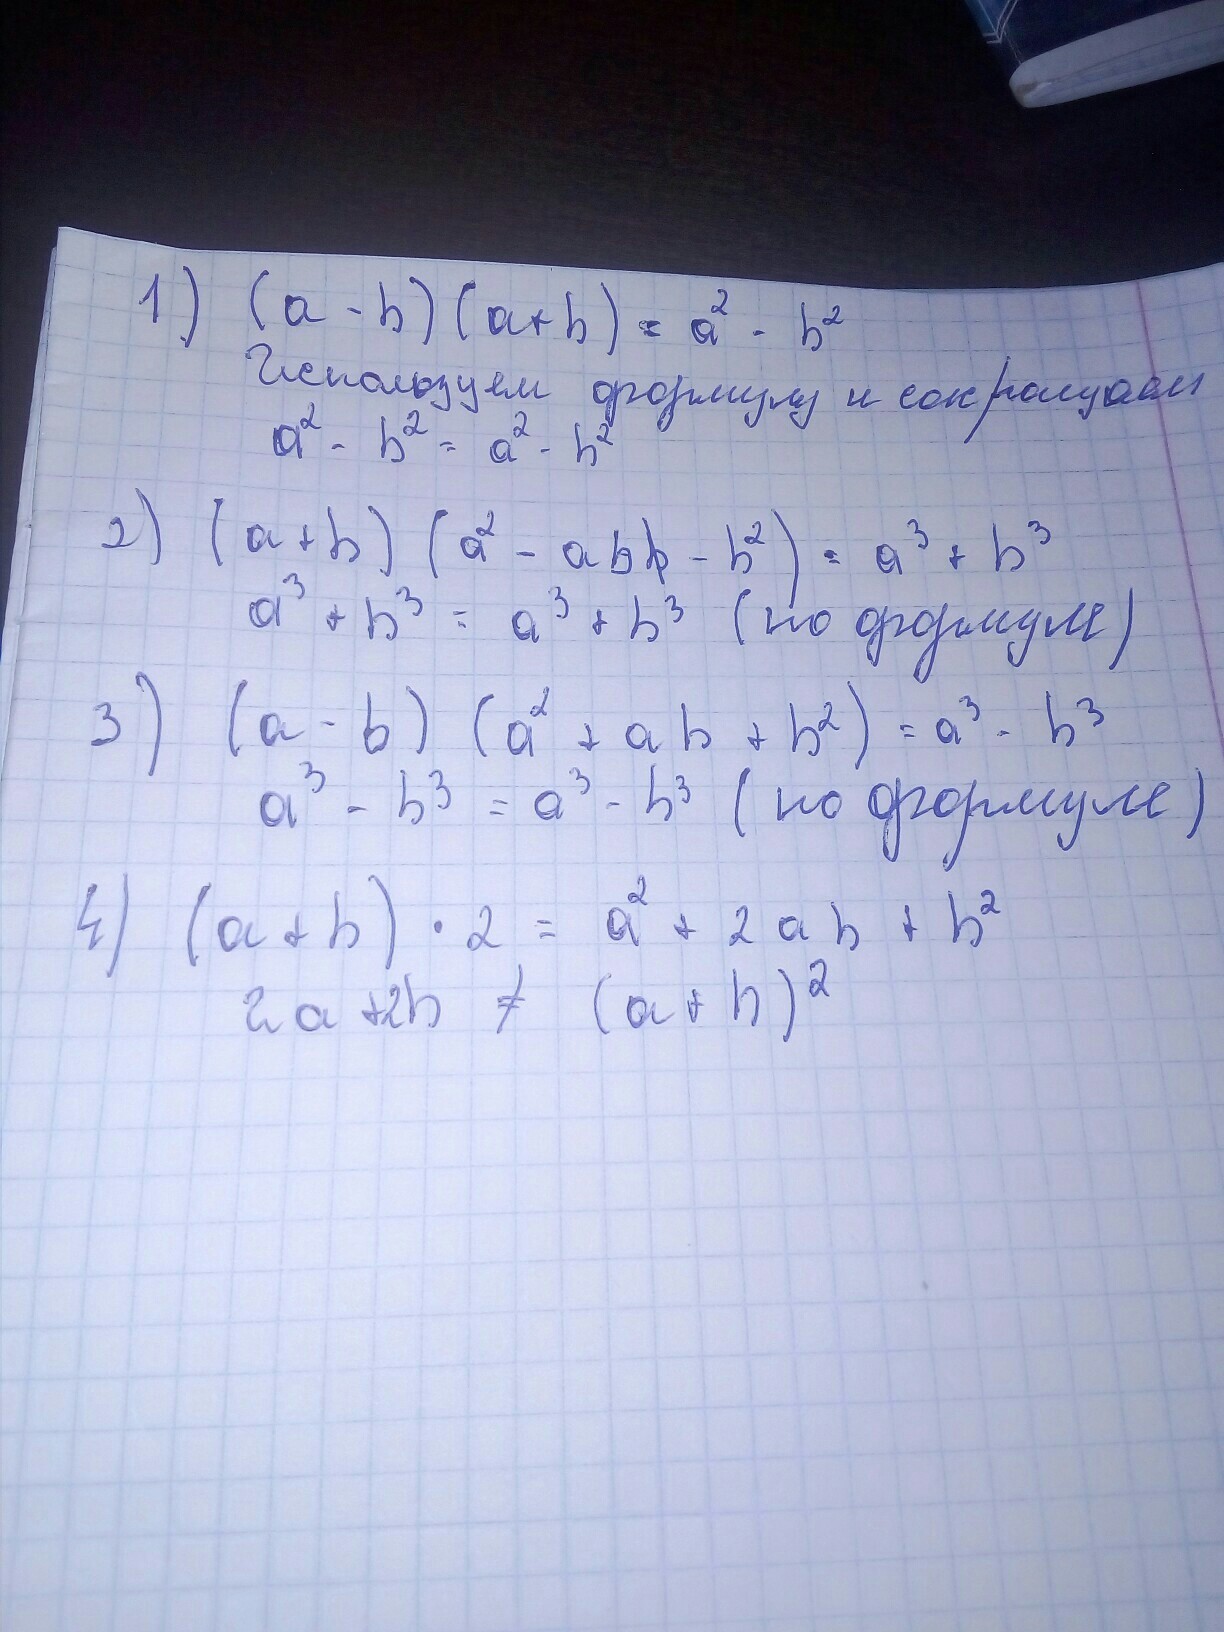 1) (a - b)(a+b) = a² - b²
Используем формулу и сокращаем
a² - b² = a² - b²
2) (a+b)(a² - abb - b²) = a³ + b³
a³ + b³ = a³ + b³ (по формуле)
3) (a - b) (a² + ab + b²) = a³ - b³
a³ - b³ = a³ - b³ (по формуле)
4) (a+b) · 2 = a² + 2ab + b²
2a+2b ≠ (a+b)²